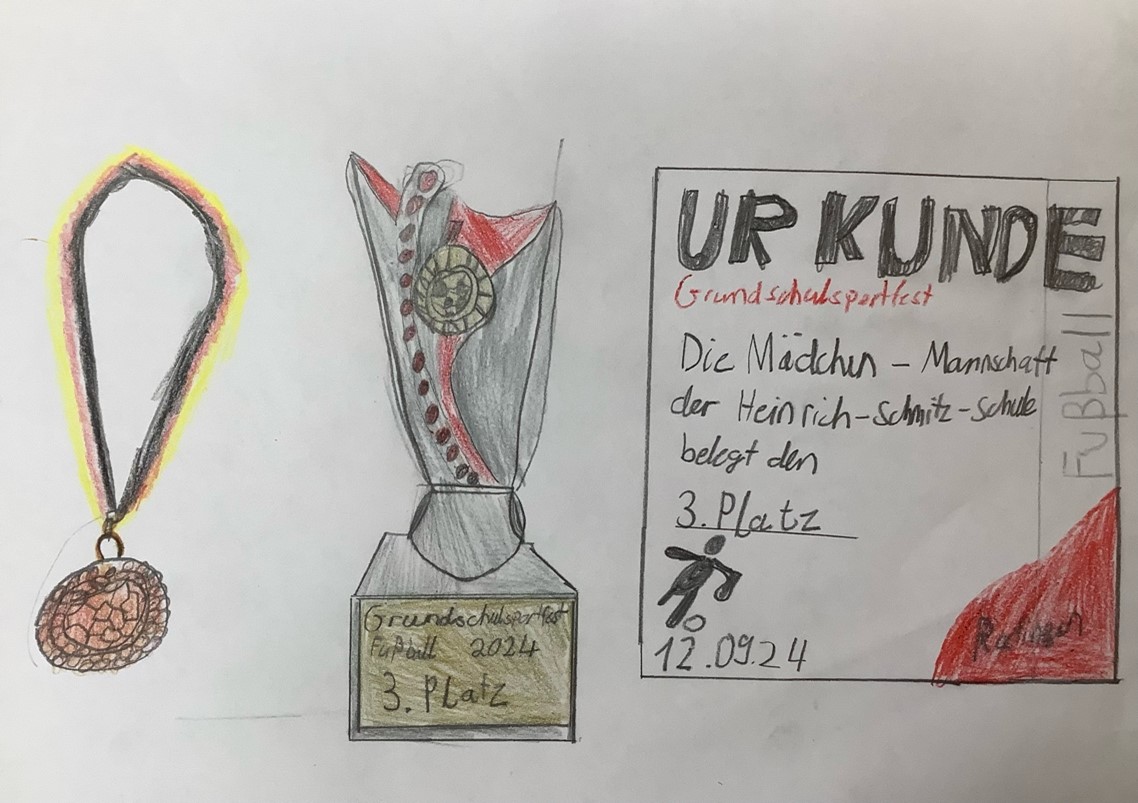 Grundschulsportfest
Fußball 2024
3. Platz
URKUNDE
Grundschulsportfest
Die Mädchen - Mannschaft
der Heinrich-Schmitz-Schule
belegt den
3. Platz
12.09.24
Fußball